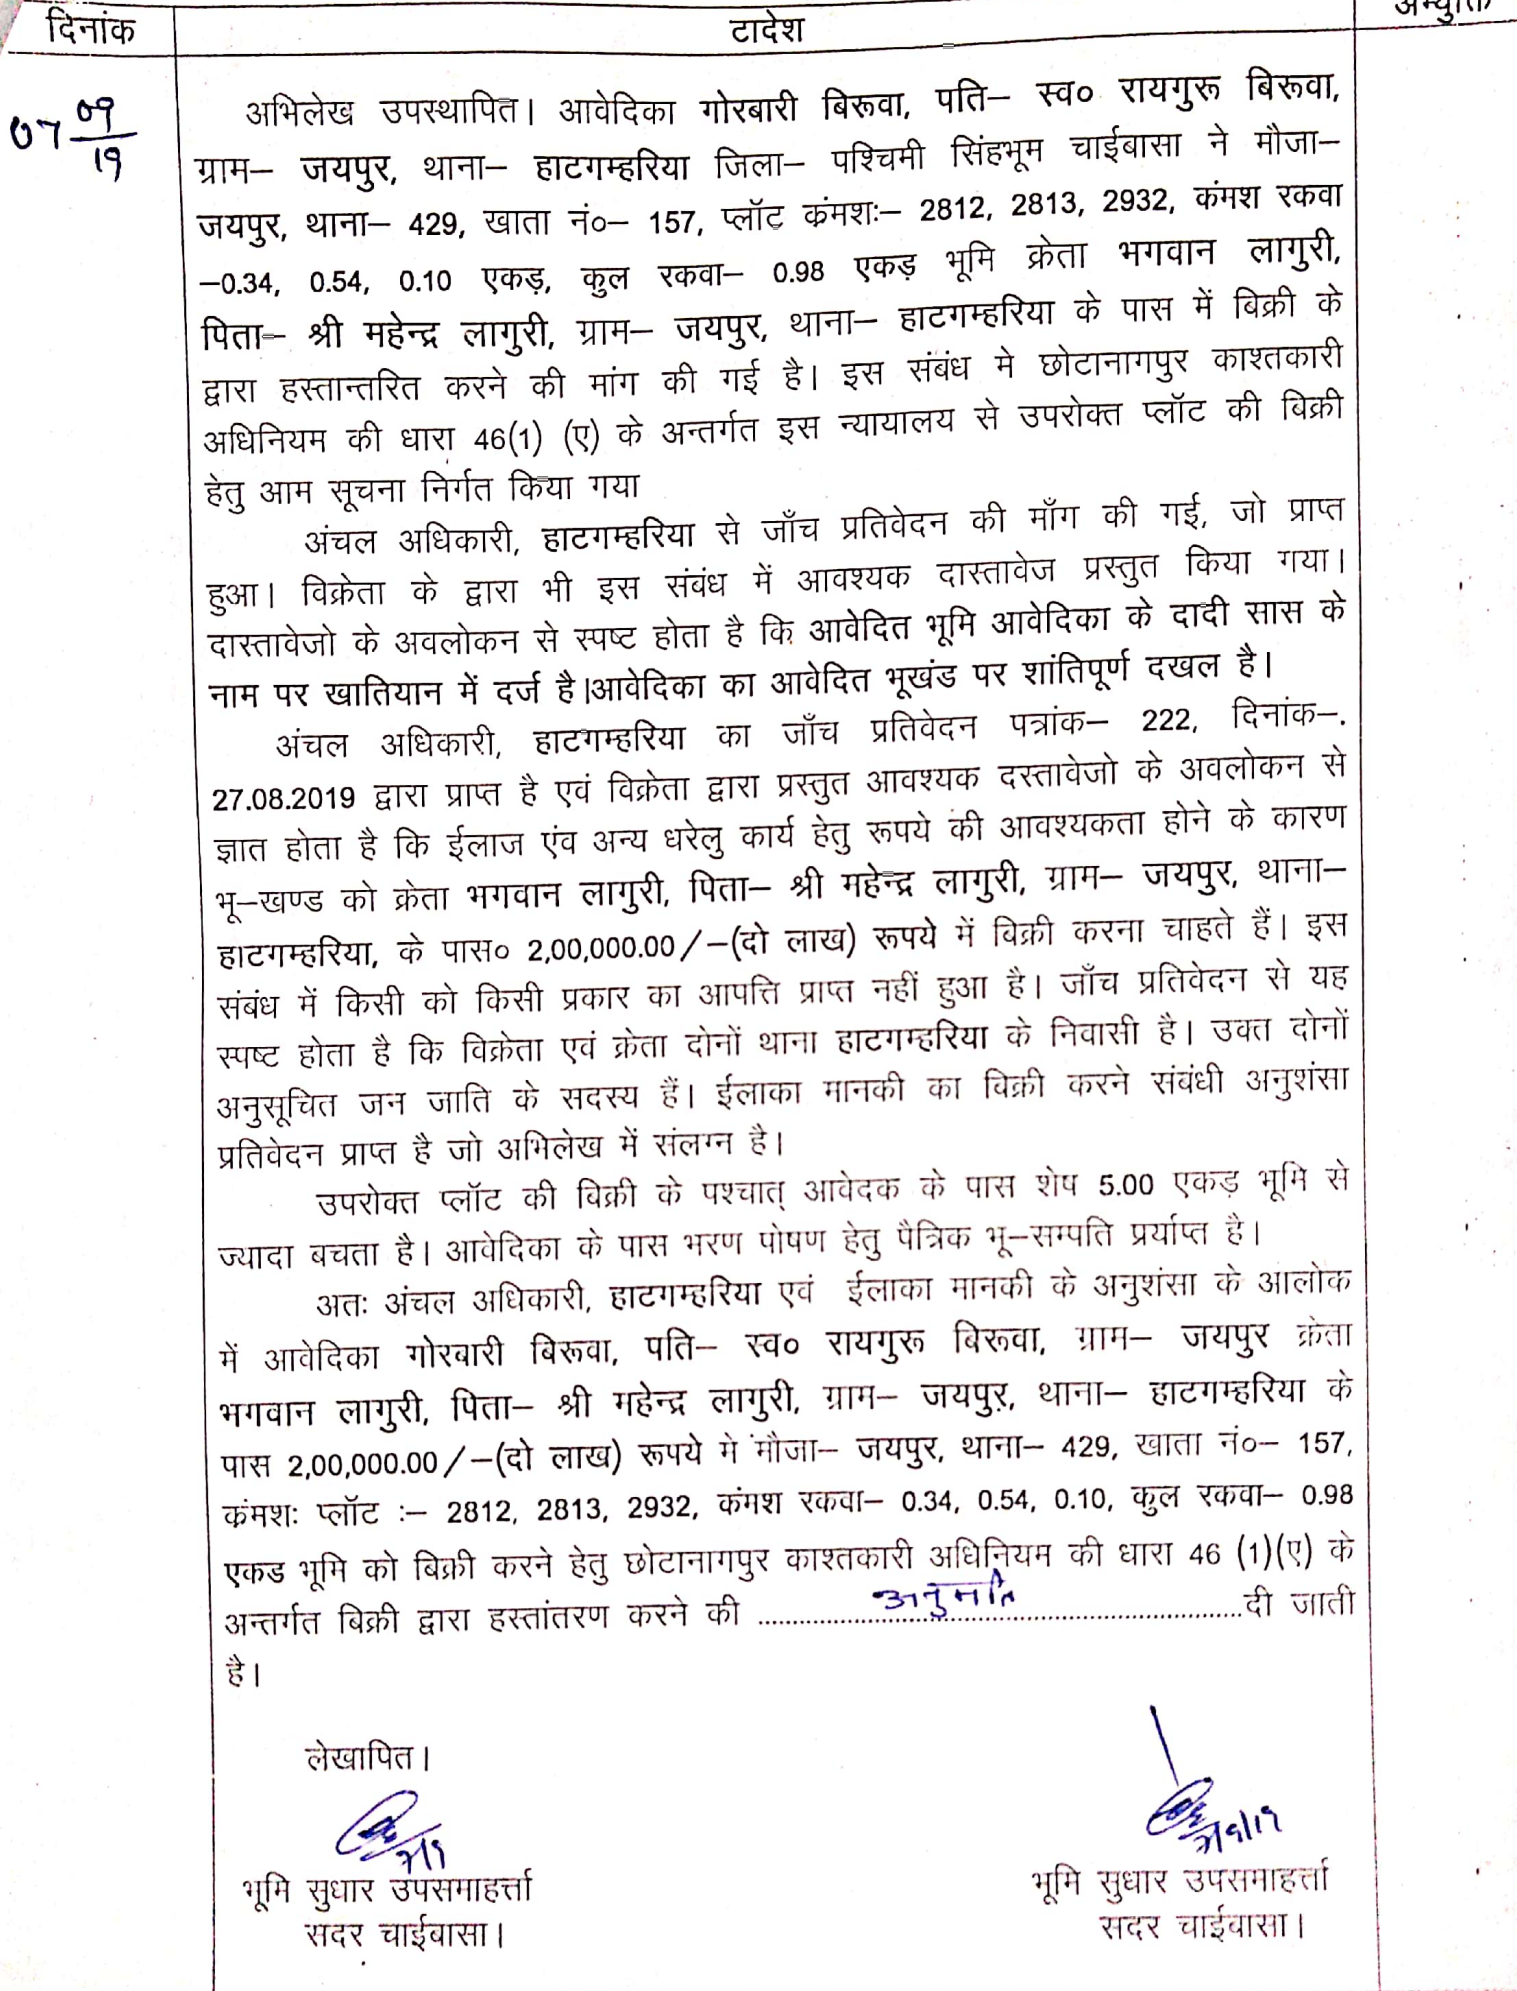 दिनांक
टादेश
अभ्युक्ति
07 09/19
अभिलेख उपस्थापित। आवेदिका गोरबारी बिरूवा, पति– स्व० रायगुरू बिरूवा,
ग्राम– जयपुर, थाना– हाटगम्हरिया जिला– पश्चिमी सिंहभूम चाईबासा ने मौजा–
जयपुर, थाना– 429, खाता नं०– 157, प्लॉट कंमशः– 2812, 2813, 2932, कंमश रकवा
–0.34, 0.54, 0.10 एकड़, कुल रकवा– 0.98 एकड़ भूमि क्रेता भगवान लागुरी,
पिता– श्री महेन्द्र लागुरी, ग्राम– जयपुर, थाना– हाटगम्हरिया के पास में बिक्री के
द्वारा हस्तान्तरित करने की मांग की गई है। इस संबंध मे छोटानागपुर काश्तकारी
अधिनियम की धारा 46(1) (ए) के अन्तर्गत इस न्यायालय से उपरोक्त प्लॉट की बिक्री
हेतु आम सूचना निर्गत किया गया
अंचल अधिकारी, हाटगम्हरिया से जाँच प्रतिवेदन की माँग की गई, जो प्राप्त
हुआ। विक्रेता के द्वारा भी इस संबंध में आवश्यक दास्तावेज प्रस्तुत किया गया।
दास्तावेजो के अवलोकन से स्पष्ट होता है कि आवेदित भूमि आवेदिका के दादी सास के
नाम पर खातियान में दर्ज है।आवेदिका का आवेदित भूखंड पर शांतिपूर्ण दखल है।
अंचल अधिकारी, हाटगम्हरिया का जाँच प्रतिवेदन पत्रांक– 222, दिनांक–.
27.08.2019 द्वारा प्राप्त है एवं विक्रेता द्वारा प्रस्तुत आवश्यक दस्तावेजो के अवलोकन से
ज्ञात होता है कि ईलाज एंव अन्य धरेलु कार्य हेतु रूपये की आवश्यकता होने के कारण
भू–खण्ड को क्रेता भगवान लागुरी, पिता– श्री महेन्द्र लागुरी, ग्राम– जयपुर, थाना–
हाटगम्हरिया, के पास० 2,00,000.00/–(दो लाख) रूपये में बिक्री करना चाहते हैं। इस
संबंध में किसी को किसी प्रकार का आपत्ति प्राप्त नहीं हुआ है। जाँच प्रतिवेदन से यह
स्पष्ट होता है कि विक्रेता एवं क्रेता दोनों थाना हाटगम्हरिया के निवासी है। उक्त दोनों
अनुसूचित जन जाति के सदस्य हैं। ईलाका मानकी का बिक्री करने संबंधी अनुशंसा
प्रतिवेदन प्राप्त है जो अभिलेख में संलग्न है।
उपरोक्त प्लॉट की बिक्री के पश्चात् आवेदक के पास शेष 5.00 एकड़ भूमि से
ज्यादा बचता है। आवेदिका के पास भरण पोषण हेतु पैत्रिक भू–सम्पति प्रर्याप्त है।
अतः अंचल अधिकारी, हाटगम्हरिया एवं ईलाका मानकी के अनुशंसा के आलोक
में आवेदिका गोरबारी बिरूवा, पति– स्व० रायगुरू बिरूवा, ग्राम– जयपुर क्रेता
भगवान लागुरी, पिता– श्री महेन्द्र लागुरी, ग्राम– जयपुर, थाना– हाटगम्हरिया के
पास 2,00,000.00/–(दो लाख) रूपये मे मौजा– जयपुर, थाना– 429, खाता नं०– 157,
कंमशः प्लॉट :– 2812, 2813, 2932, कंमश रकवा– 0.34, 0.54, 0.10, कुल रकवा– 0.98
एकड भूमि को बिक्री करने हेतु छोटानागपुर काश्तकारी अधिनियम की धारा 46 (1)(ए) के
अन्तर्गत बिक्री द्वारा हस्तांतरण करने की ........अनुमति........दी जाती
है।
लेखापित।
7/9/19
भूमि सुधार उपसमाहर्त्ता
सदर चाईबासा।
भूमि सुधार उपसमाहर्त्ता
सदर चाईबासा।